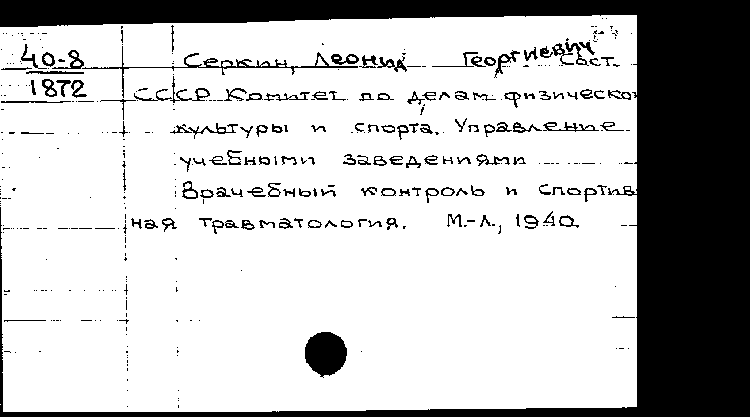 40-8
1872
Серкин, Леонид Георгиевич сост.
СССР Комитет по делам физическо
культуры и спорта. Управление
учебными заведениями
Врачебный контроль и спортив
ная травматология. М.-Л., 1940.